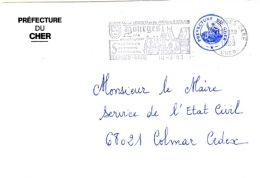 PRÉFECTURE
DU
CHER
Bourges
Monsieur le Maire
Service de l'Etat Civil
68021 Colmar Cedex